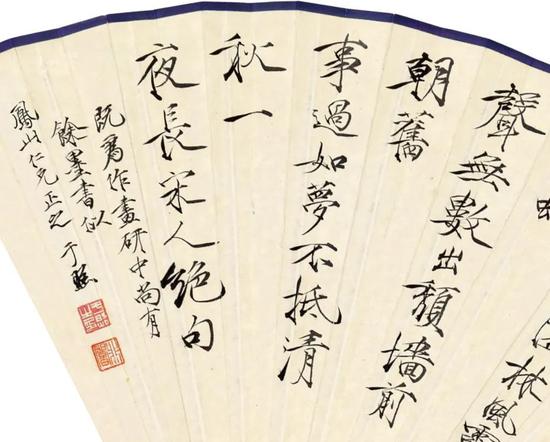 林風
聲無數出頹墻前
朝舊
事過如夢不抵清
秋一
夜長宋人絕句
既為作畫研中尚有
餘墨書似
鳳山仁兄正之 于照